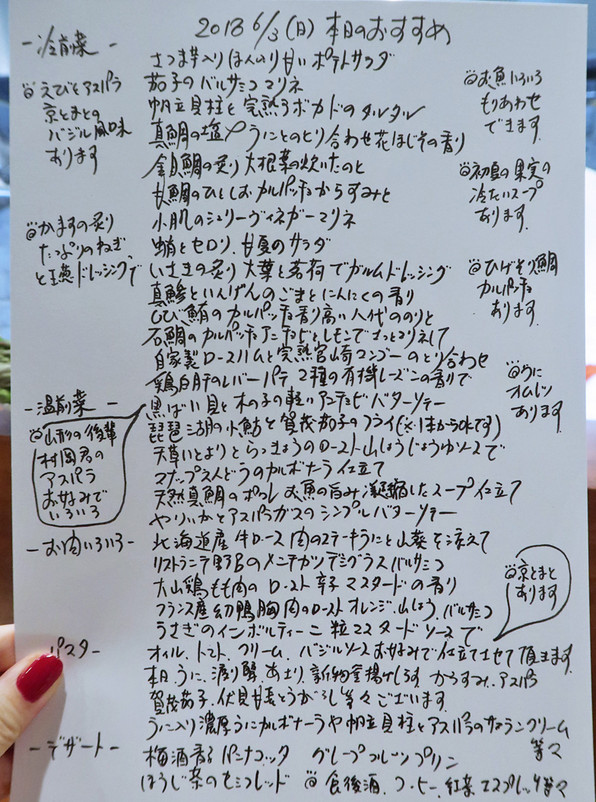 2018 6/3(日) 本日のおすすめ
-冷前菜-
さつま芋入りほんのり甘いポテトサラダ
茄子のバルサミコマリネ
帆立貝柱と完熟アボカドのタルタル
真鯛の塩〆うにとのとり合わせ花ほじその香り
金目鯛の炙り大根菜の炊いたのと
甘鯛のひとしおカルパッチョからすみと
小肌のシェリーヴィネガーマリネ
蛸とセロリ、甘夏のサラダ
いさきの炙り大葉と茗荷でガルムドレッシング
真鯵といんげんのごまとにんにくの香り
しび鮪のカルパッチョ香り高い八代ののりと
石鯛のカルパッチョアンチョビとレモンでさっとマリネして
自家製ロースハムと完熟宮崎マンゴーのとり合わせ
鶏白肝のレバーパテ2種の有機レーズンの香りで
@えびとアスパラ
京とまとの
バジル風味
あります
@かますの炙り
たっぷりのねぎ
と ドレッシングで
@お魚いろいろ
もりあわせ
できます
@初夏の果実の
冷たいスープ
あります
@ひげそり鯛
カルパッチョ
あります
@うに
オムレツ
あります
-温前菜-
黒ばい貝と木の子の軽いアンチョビバターソテー
琵琶湖の小鮎と賀茂茄子のフライ(×1本から○Kです)
天草いとよりとらっきょうのロースト山しょうじょうゆソースで
スナップえんどうのカルボナーラ仕立て
天然真鯛のポワレ お魚の旨み凝縮したスープ仕立て
やりいかとアスパラガスのシンプルバターソテー
@山形の後輩
村岡君の
アスパラ
お好みで
いろいろ
-お肉いろいろ-
北海道産牛ロース肉のステーキうにと山葵を添えて
リストランテ野呂のメンチカツデミグラスバルサミコ
大山鶏もも肉のロースト辛子マスタードの香り
フランス産幼鴨胸肉のロースト オレンジ、山しょう、バルサミコ
うさぎのインボルティーニ粒マスタードソースで
@京とまと
あります
パスタ-
オイル、トマト、クリーム、バジルソースお好みで仕立てさせて頂きます
本日、うに、渡り蟹、あさり、新物釜揚げしらす からすみ、アスパラ
賀茂茄子、伏見甘長とうがらし等々ございます。
うに入り濃厚うにカルボナーラや帆立貝柱とアスパラのサフランクリーム
等々
-デザート-
梅酒香るパンナコッタ グレープフルーツプリン
ほうじ茶のセミフレッド @食後酒、コーヒー、紅茶、エスプレッソ等々